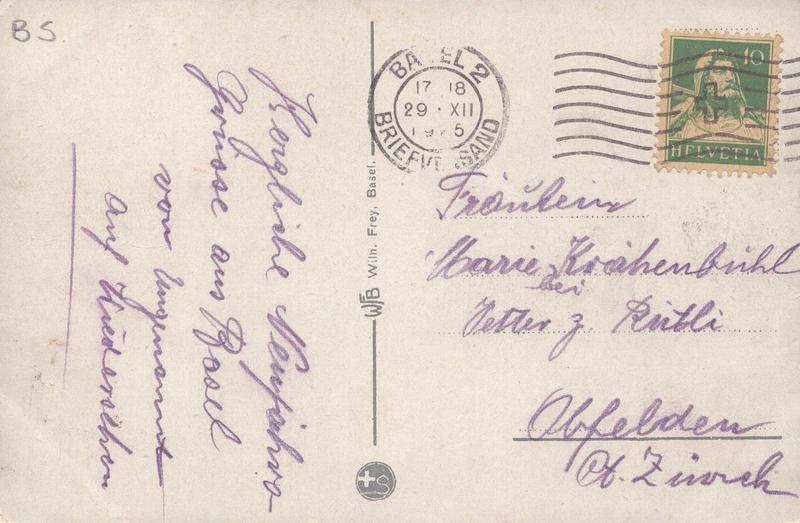 BS
Herzliche Neujahrs-
Grüsse aus Basel
von Ungenannt
auf Wiedersehen
WFB Wilh. Frey, Basel.
BASEL 2
17 18
29 · XII
1925
BRIEFVERSAND
10
HELVETIA
Fräulein
Marie Krähenbühl
bei
Vetter z. Rütli
Obfelden
Ct. Zürich